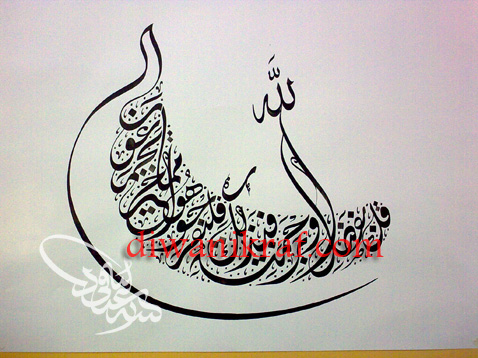 قل بفضل الله وبرحمته فبذلك فليفرحوا هو خير مما يجمعون
diwanikraf.com